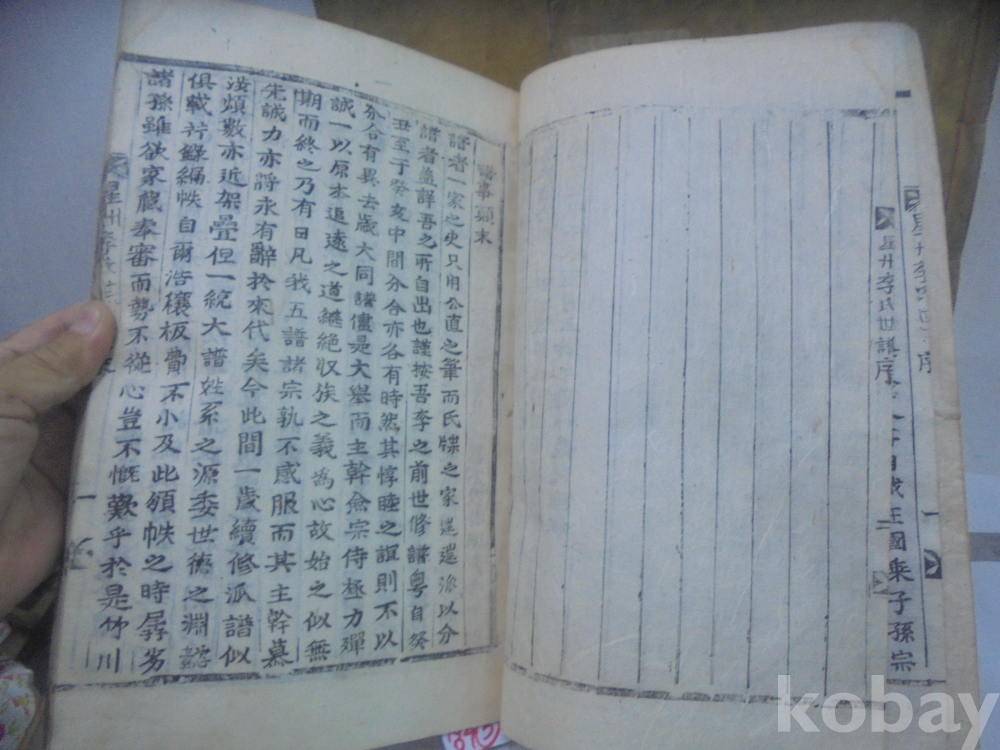 譜事顚末
譜者一家之史只用公直之筆而氏牒之家遑遑派以分
譜者盖詳吾之所自出也謹按吾李之前世修譜粤自癸
丑至于癸亥中間分合亦各有時然其惇睦之誼則不以
分合有異去歲大同譜儘是大擧而主幹僉宗侍極力殫
誠一以原本追遠之道繼絶収族之義為心故始之似無
期而終之乃有日凡我五譜諸宗孰不感服而其主幹慕
先誠力亦將永有辭於來代矣今此間一歲續修派譜似
涉煩數亦近架疊但一統大譜姓系之源委世德之淵懿
俱載幷錄編帙自爾浩穰板費不小及此頒帙之時孱劣
諸孫雖欲家藏奉審而勢不從心豈不慨歎乎於是竹川
星州李氏世譜
一
星州李氏世譜序
一
國乘子孫宗
kobay